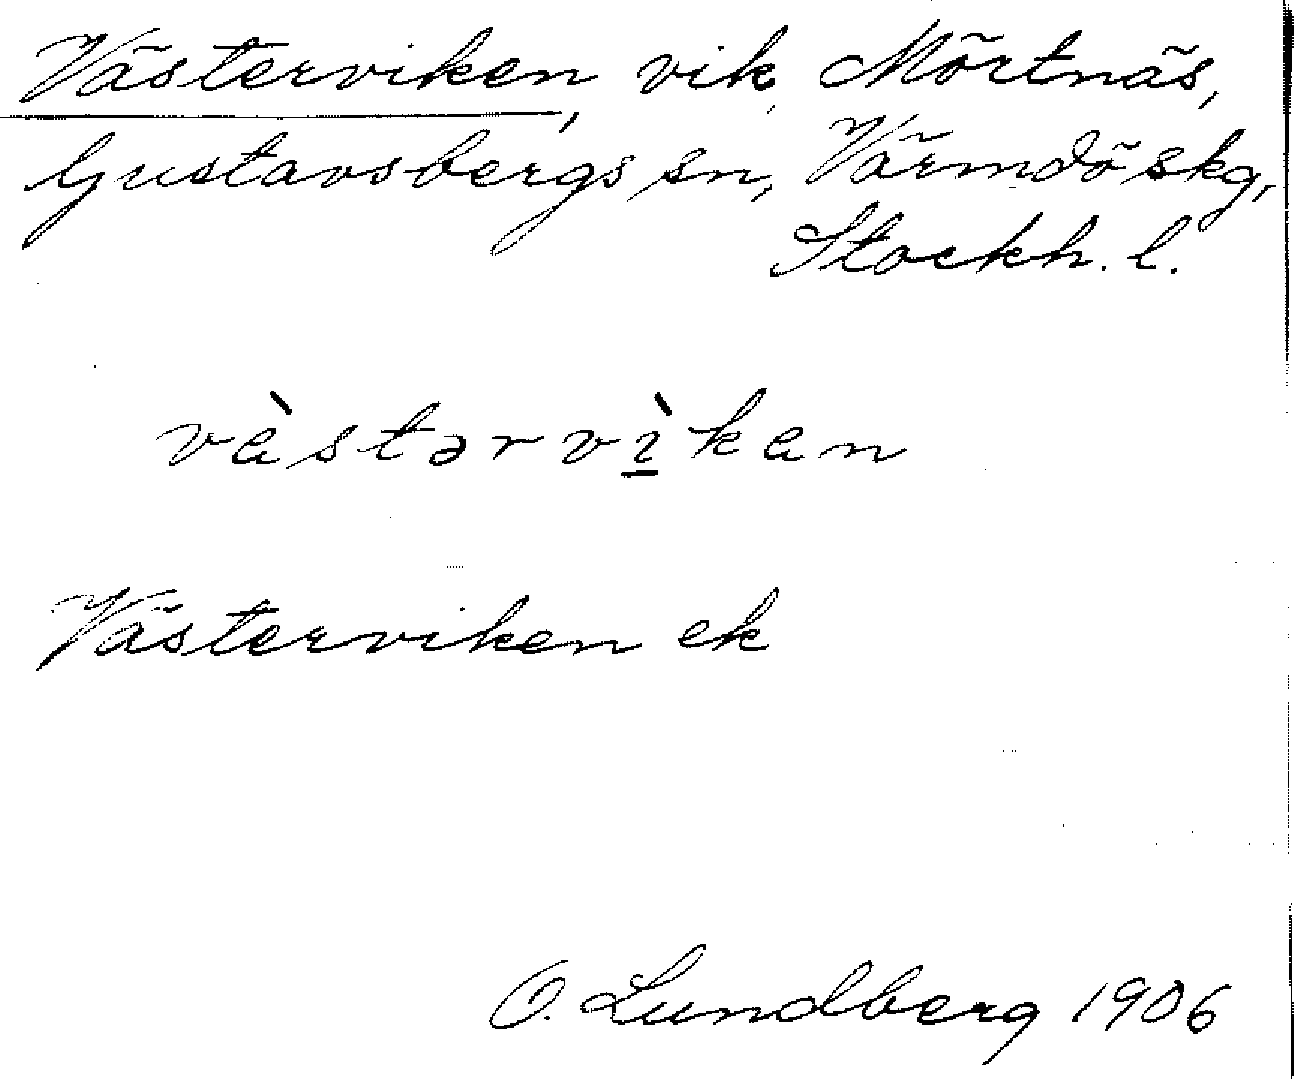 Västerviken, vik, Mörtnäs,
Gustavsbergs sn, Värmdö skg,
Stockh. l.
vàstərvìkan
Västerviken ek
O. Lundberg 1906